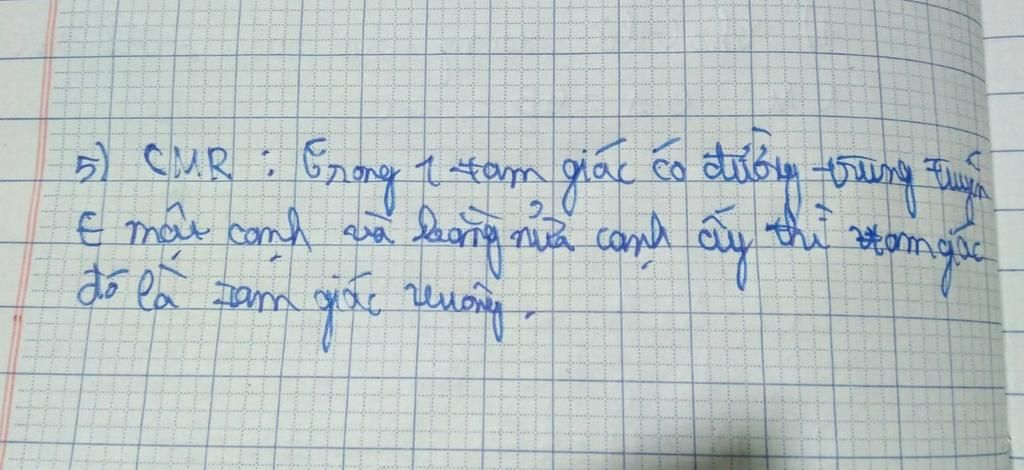 5) CMR : Trong 1 tam giác có đường trung tuyến
∈ một cạnh và bằng nửa cạnh ấy thì tam giác
đó là tam giác vuông.